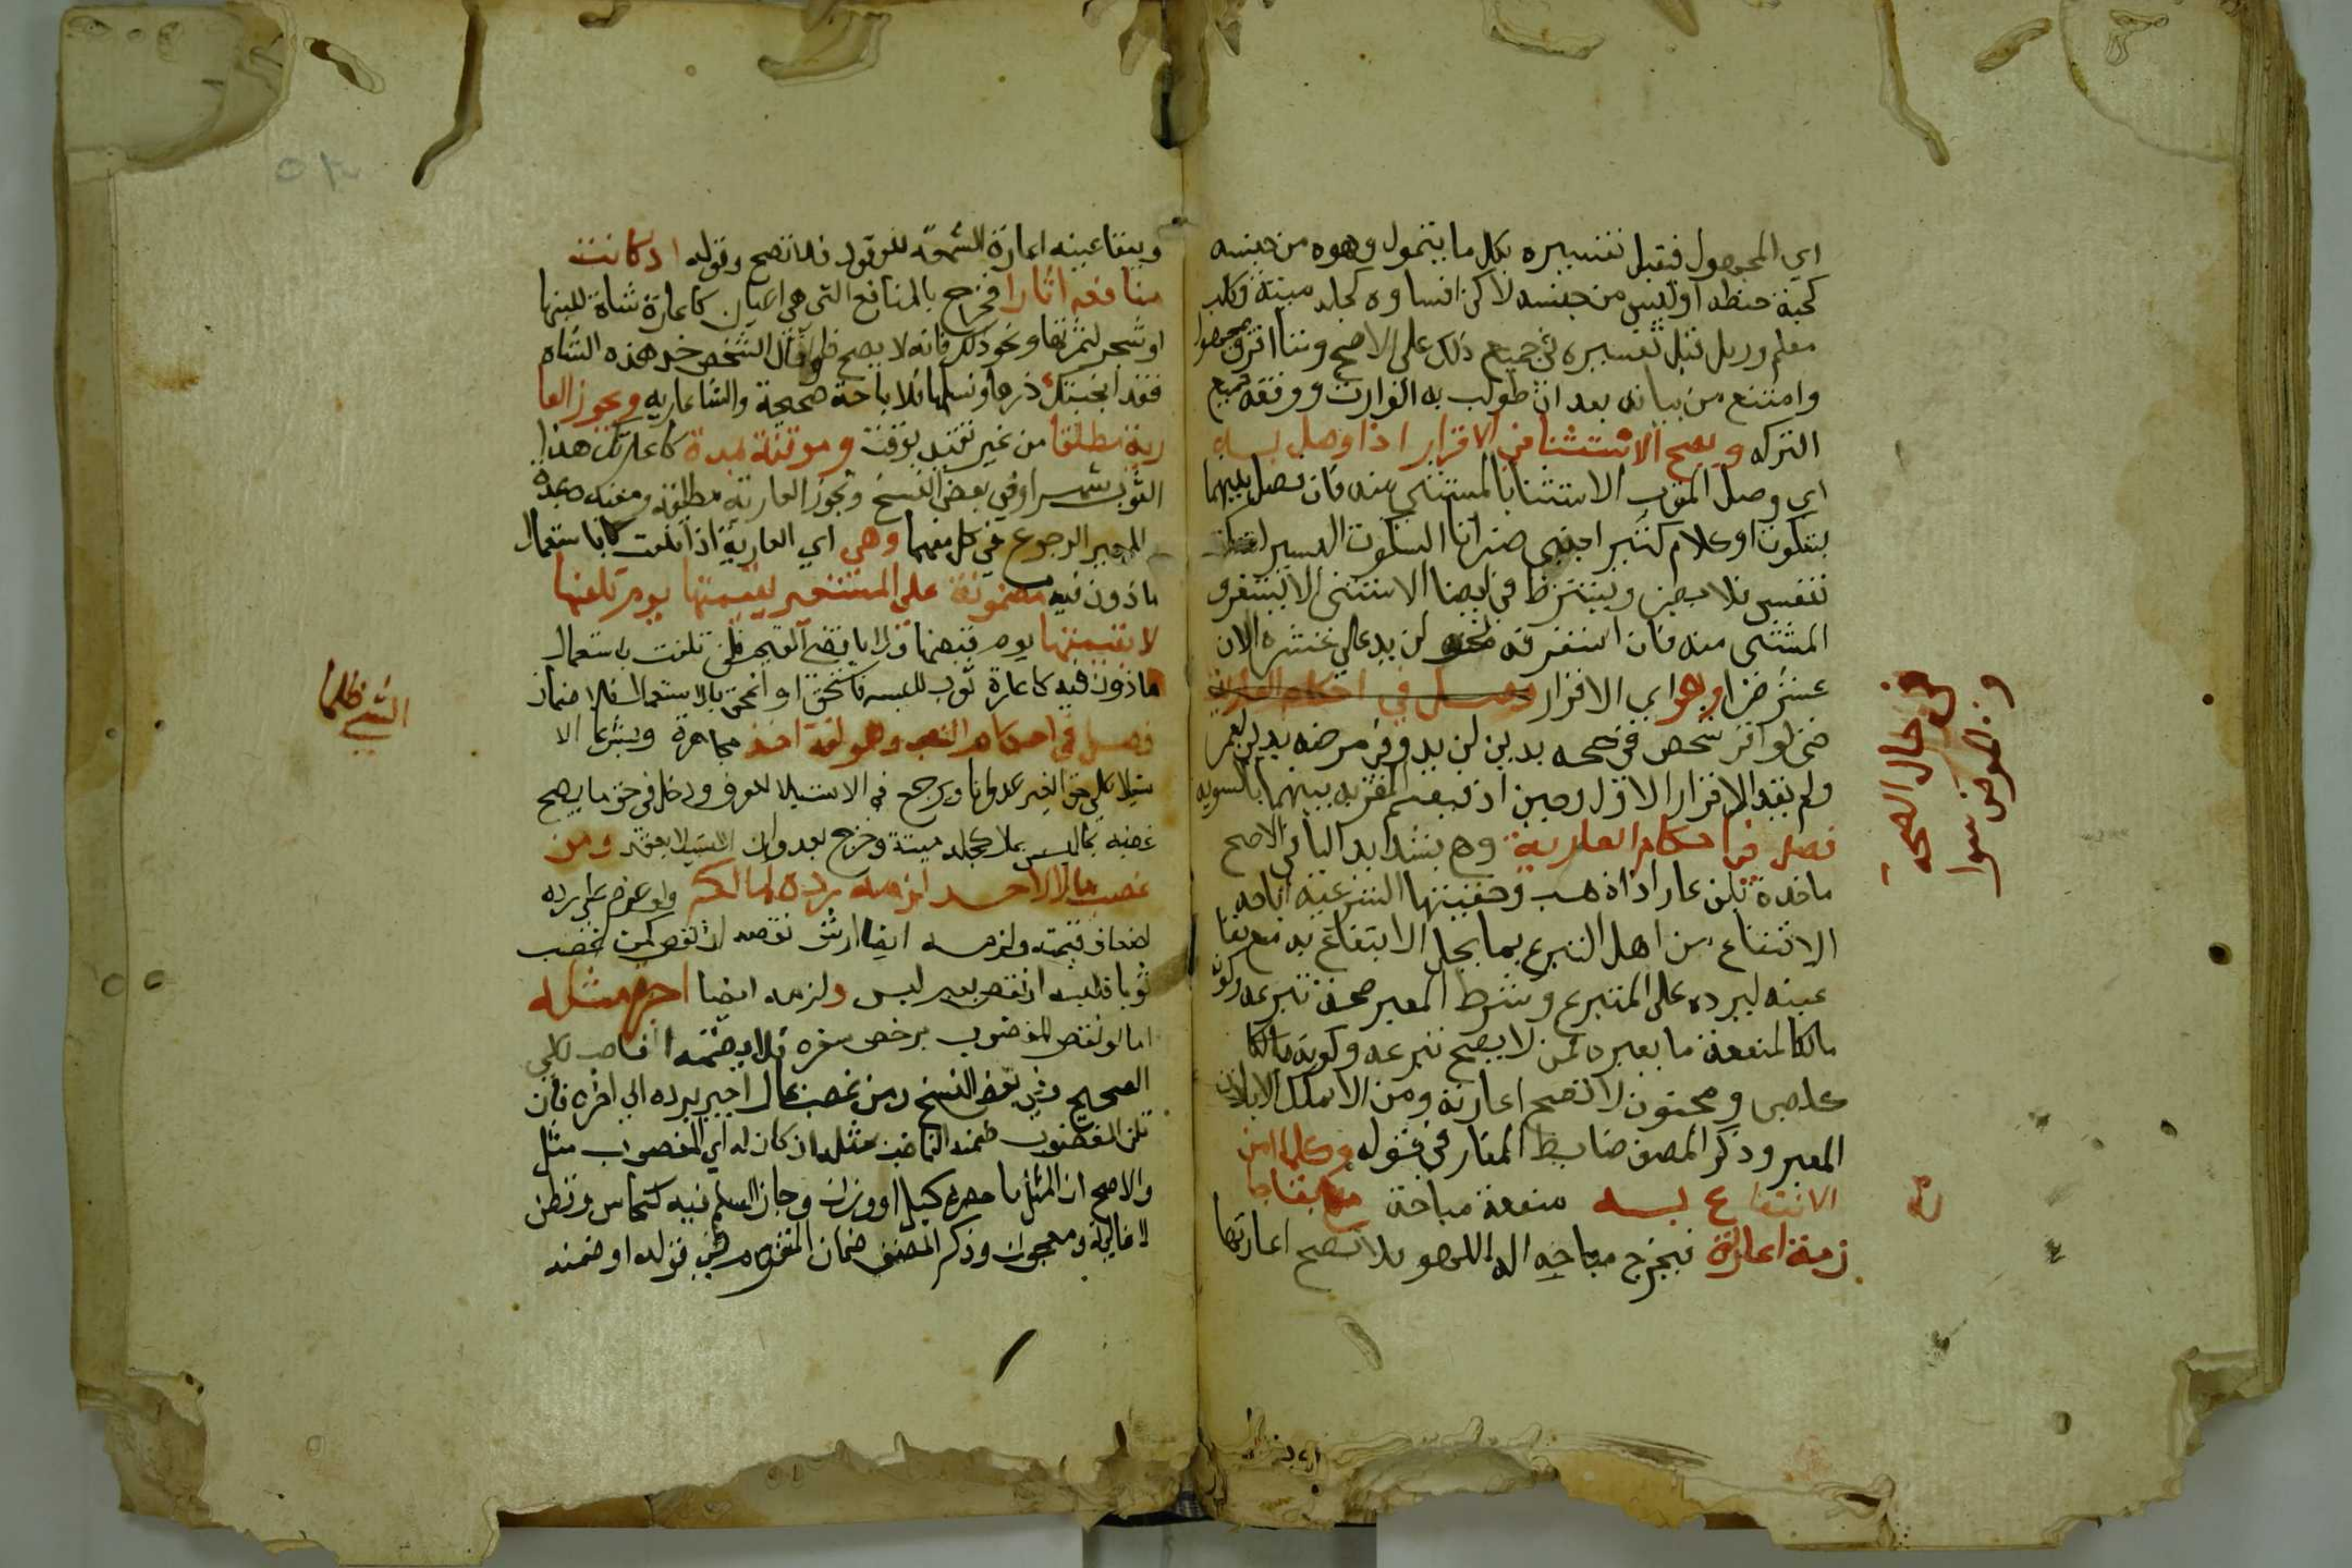 اي المجهول فيقبل تفسيره بكل ما يتمول وهوه من جنسه
كحبة حنطه او ليس من جنسه لاكن اقتناوه كجلد ميتة وكلب
معلم وزبل قبل تفسيره في جميع ذلك على الاصح ومتا اقر بمجهول
وامتنع من بيانه بعد ان طولب به الوارث ووقفه جميع
التركه ويصح الاستثنا في الاقرار اذا وصل به
اي وصل المقر الاستثنا بالمستثنى منه فان فصل بينهما
بسكوت او كلام كثير اجنبي ضر اما السكوت اليسير
تنفس فلا يضر ويشترط في ايضا الاستثنى الا يستغرق
المستثنى منه فان استغرقه نحو لزيد علي عشره الا
عشر ضر وهو اي الاقرار فصل في احكام العارية
حتى لو اقر شخص في صحه بدين لزيد وفي مرضه بدين لعمر
ولم يقدم الاقرار الاول وحين اذ فيقسم المقر به بينهما بالسويه
فصل في احكام العارية وهي بتشديد اليا في الاصح
ماخدة من عار اذا ذهب وحقيقتها الشرعية اباحه
الانتفاع من اهل التبرع بما يحل الانتفاع به مع بقا
عينه ليرده على المتبرع وشرط المعير صحة تبرعه وكونه
مالكا لمنفعة ما يعيره فمن لا يصح تبرعه وكونه مالكا
كصبي ومجنون لا تصح اعارته ومن لا يملك الا باذن
المعير وذكر المصنف ضابط المعار في قوله وكلما امكن
الانتفاع به منفعة مباحة مع بقا
زمة اعارته فيخرج مباحه اله اللهو فلا تصح اعارتها
في حال الصحة
و في المرض سوا
وببقا عينه اعارة الشمعه للوقود فلا تصح وقوله اذ كانت
منافعه اثارا فخرج بالمنافع التي هي اعيان كاعارة شاة للبنها
او شجر لثمرتها ونحو ذلك فانه لا يصح فلو قال لشخص خد هذه الشاه
فقد ابحتك درها ونسلها فالاباحة صحيحة والشا عاريه ويجوز العا
رية مطلقا من غير تقيد بوقت وموقتة بمدة كاعرتك هذا
الثوب شهرا وفي بعض النسخ وتجوز العارية مطلقه ومقيده بمده
للمعير الرجوع في كل منهما وهي اي العارية اذا تلفت لا باستعمال
ماذون فيه مضمونة على المستعير بقيمتها يوم تلفها
لا بقيمتها يوم قبضها ولا باقصى القيم فان تلفت باستعمال
ماذون فيه كاعارة ثوب للبسه فانسحق او انمحق بالاستعمال فلا ضمان
فصل في احكام الغصب وهو لغة اخذ مجاهرة وشرعا الا
ستيلا على حق الغير عدوانا ويرجع في الاستيلا للعرف ودخل في حق ما يصح
غصبه مما ليس بمال كجلد ميتة وخرج بعدوان الاستيلا بعقد ومن
غصب مالا لاحد لزمه رده لمالكه ولو غرم على رده
اضعاف قيمته ولزمه ايضا ارش نقصه ان نقص كمن غصب
ثوبا فلبسه او نقص بغير لبس ولزمه ايضا اجرة مثله
اما لو نقص المغضوب برخص سعره فلا يضمنه الغاصب على
الصحيح وفي بعض النسخ ومن غصب مال اجبر برده الى اخره فان
تلف المغضوب ضمنه الغاصب بمثله ان كان له اي المغصوب مثل
والاصح ان المثل ما حصره كيل او وزن وجاز السلم فيه كنحاس وقطن
لا غالية ومعجون وذكر المصنف ضمان المتقوم في قوله او ضمنه
الشي ظلما